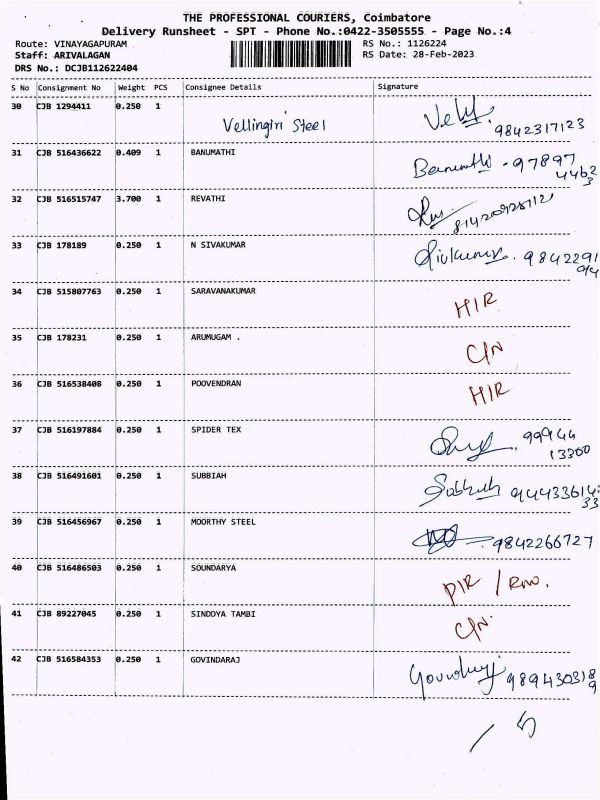 THE PROFESSIONAL COURIERS, Coimbatore
Delivery Runsheet - SPT - Phone No.:0422-3505555 - Page No.:4
Route: VINAYAGAPURAM RS No.: 1126224
Staff: ARIVALAGAN RS Date: 28-Feb-2023
DRS No.: DCJB112622404
S No Consignment No Weight PCS Consignee Details Signature
30 CJB 1294411 0.250 1 Vellingiri Steel 9842317123
31 CJB 516436622 0.409 1 BANUMATHI Banumathi - 97897
4462
3
32 CJB 516515747 3.700 1 REVATHI
33 CJB 178189 0.250 1 N SIVAKUMAR Sivakumar. 9842291
34 CJB 515807763 0.250 1 SARAVANAKUMAR HIR
35 CJB 178231 0.250 1 ARUMUGAM . C/N
36 CJB 516538408 0.250 1 POOVENDRAN HIR
37 CJB 516197884 0.250 1 SPIDER TEX 99944
13300
38 CJB 516491601 0.250 1 SUBBIAH Subbiah 944336142
33
39 CJB 516456967 0.250 1 MOORTHY STEEL 9842266727
40 CJB 516486503 0.250 1 SOUNDARYA PIR /
41 CJB 89227045 0.250 1 SINDDYA TAMBI C/N.
42 CJB 516584353 0.250 1 GOVINDARAJ Govindaraj 989430318
9